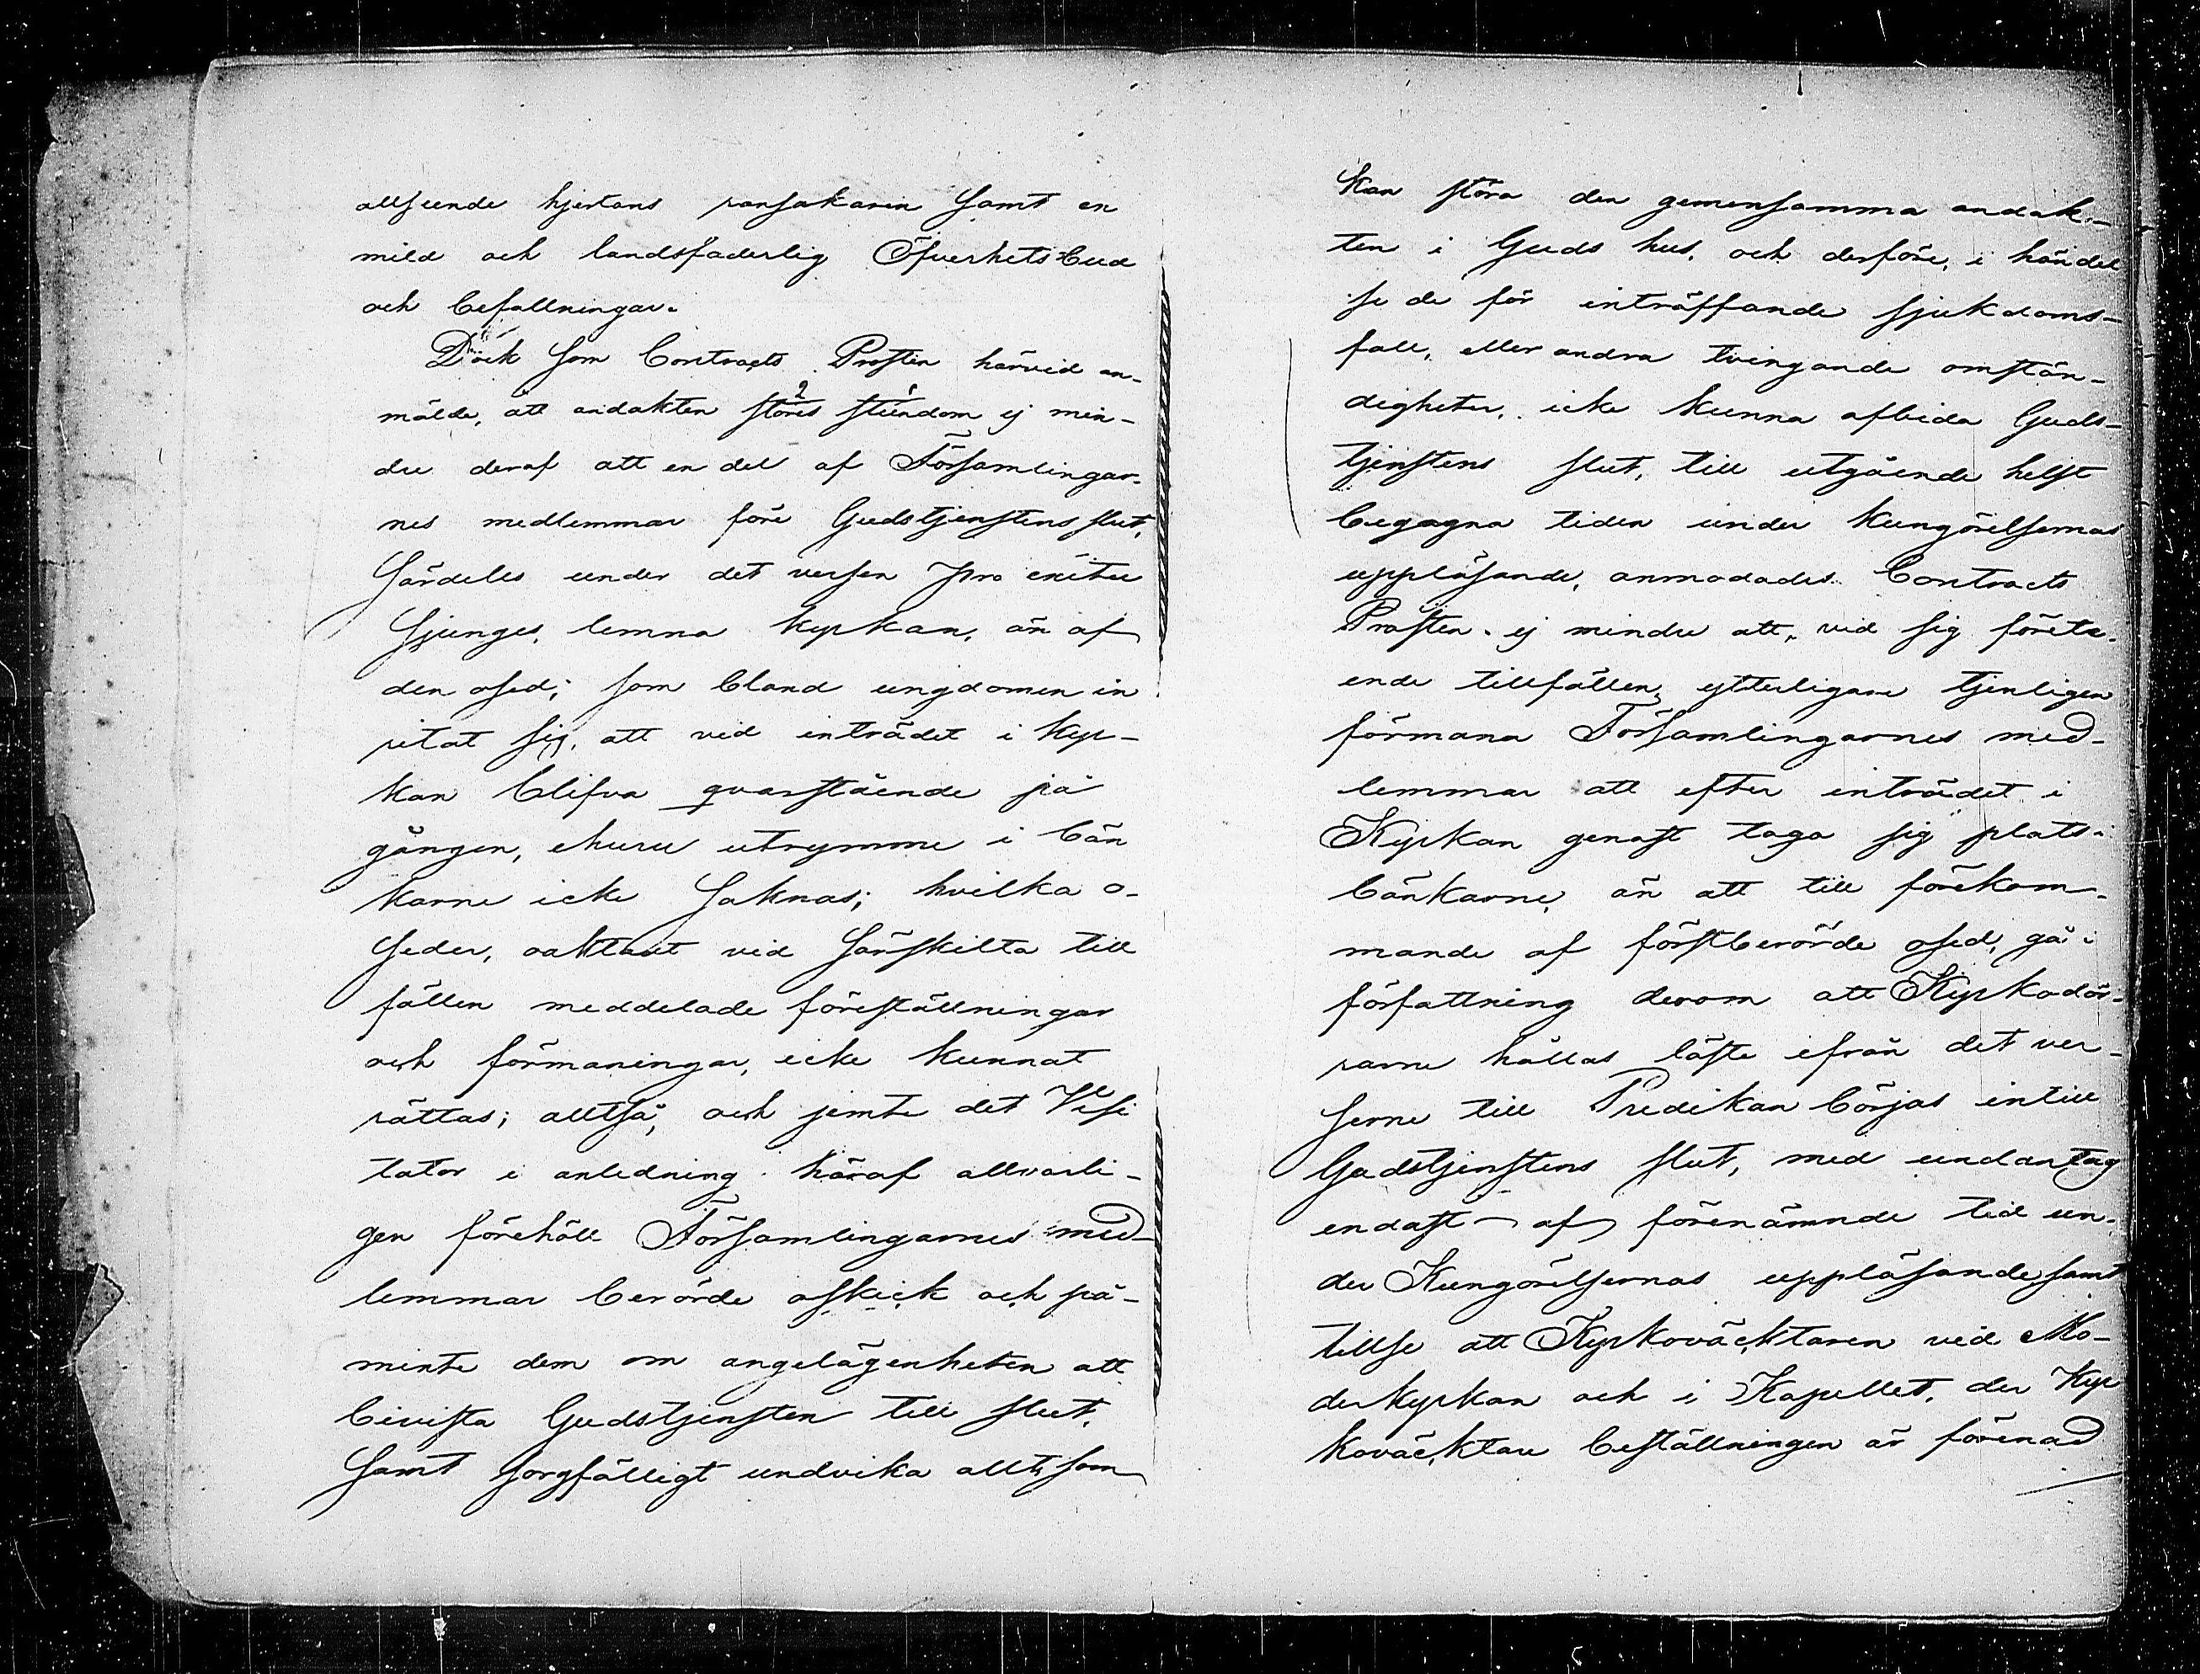 allseende hjertans ransakaren samt en
mild och landsfaderlig Öfverhets bud
och befallningar.
Dock som Contracts Prosten härvid an-
mälde, att andakten störes 2 stundom 1 ej min-
dre deraf att en del af Församlingar-
nes medlemmar före Gudstjenstens slut,
särdeles under det versen pro exitu
sjunges, lemna kyrkan, än af
den osed, som bland ungdomen in
ritat sig, att vid inträdet i kyr-
kan blifva qvarstående på
gången, ehuru utrymme i bän
karne icke saknas; hvilka o-
seder, oaktadt vid särskilta till
fällen meddelade föreställningar
och förmaningar, icke kunnat
rättas; alltså, och jemte det Visi
tator i anledning häraf allvarli-
gen förehöll Församlingarnes med-
lemmar berörde oskick och på-
minte dem om angelägenheten att
bivista Gudstjensten till slut,
samt sorgfälligt undvika allt, som
kan störa den gemensamma andak-
ten i Guds hus, och derföre, i händel
se de för inträffande sjukdoms-
fall, eller andra tvingande omstän-
digheter, icke kunna afbida Guds-
tjenstens slut, till utgående helst
begagna tiden under kungörelsernas
uppläsande, anmodades Contracts
Prosten ej mindre att, vid sig förete-
ende tillfällen, ytterligare tjenligen
förmana Församlingarnes med-
lemmar att efter inträdet i
Kyrkan genast taga sig plats i
bänkarne, än att till förekom-
mande af förstberörde osed, gå i
författning derom att Kyrkodör-
rarne hållas läste ifrån det ver-
serne till Predikan börjas intill
Gudstjenstens slut, med undantag
endast af förenämnde tid un-
der Kungörelsernas uppläsande samt
tillse att Kyrkoväcktaren vid Mo-
derkyrkan och i Kapellet, der Kyr
koväcktare beställningen är förenad